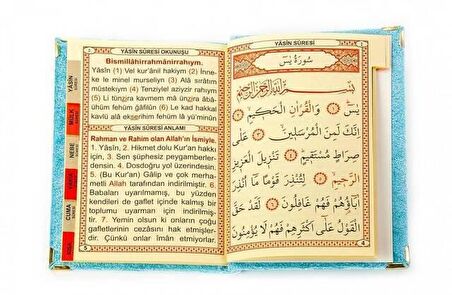 YÂSÎN SÛRESİ OKUNUŞU
Bismillâhirrahmânirrahıym.
Yâsîn (1) Vel kur'ânil hakiym (2) İnne-
ke le minel murseliyn (3) Alâ sırâtım
müstekıym (4) Tenziylel aziyzir rahıym
(5) Li tünzira kavmem mâ ünzira âbâ-
ühüm fehüm ğâfilûn (6) Le kad hakkal
kavlü alâ ekserihim fehüm lâ yü'minûn
YÂSÎN SÛRESİ ANLAMI
Rahman ve Rahim olan Allah'ın İsmiyle.
1. Yâsîn, 2. Hikmet dolu Kur'an hakkı
için, 3. Sen şüphesiz peygamberler-
densin. 4. Dosdoğru yol üzerindesin.
5. (Bu Kur'an) Gâlip ve çok merha-
metli Allah tarafından indirilmiştir. 6.
Babaları uyarılmamış, bu yüzden
kendileri de gaflet içinde kalmış bir
toplumu uyarman için indirilmiş-
tir. 7. Yemin olsun ki onların çoğu
gafletlerinin cezasını hak etmişler-
dir. Çünkü onlar îmân etmiyorlar.
5
YÂSÎN
MÜLK
NEBE
CUMA
YÂSÎN SÛRESİ
سُورَةُ يٰسٓ
بِسْمِ اللّٰهِ الرَّحْمٰنِ الرَّحِيمِ
يٰسٓ ﴿١﴾ وَالْقُرْاٰنِ الْحَكِيمِ ﴿٢﴾
اِنَّكَ لَمِنَ الْمُرْسَلِينَ ﴿٣﴾ عَلٰى
صِرَاطٍ مُسْتَقِيمٍ ﴿٤﴾ تَنْزِيلَ الْعَزِيزِ
الرَّحِيمِ ﴿٥﴾ لِتُنْذِرَ قَوْمًا مَٓا اُنْذِرَ
اٰبَٓاؤُ۬هُمْ فَهُمْ غَافِلُونَ ﴿٦﴾ لَقَدْ حَقَّ
الْقَوْلُ عَلٰٓى اَكْثَرِهِمْ فَهُمْ لَا يُؤْمِنُونَ
4